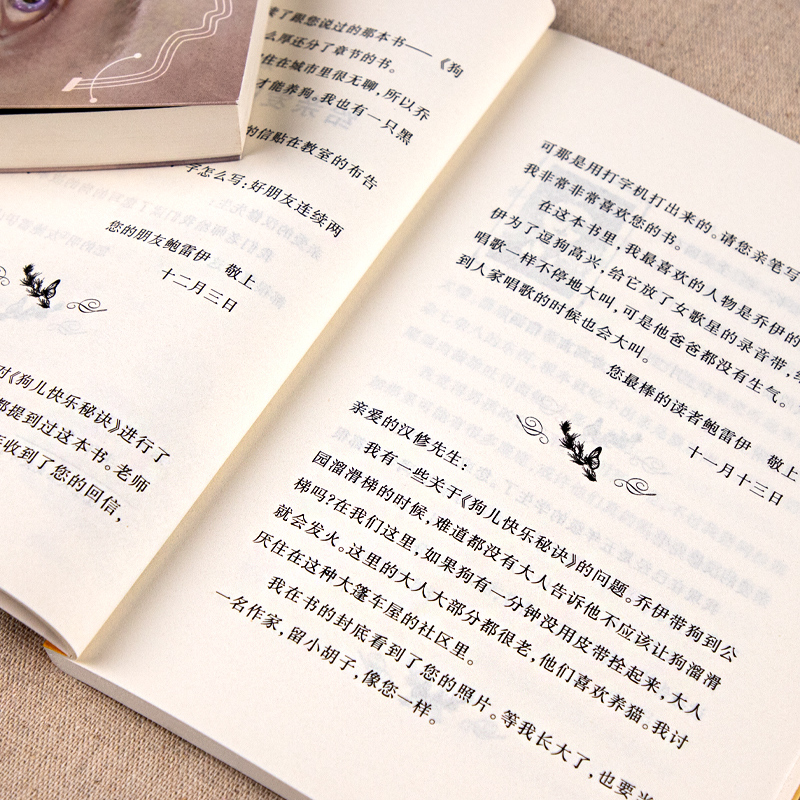 读了跟您说过的那本书——《狗
么厚还分了章节的书。
住在城市里很无聊，所以乔
才能养狗。我也有一只黑
的信贴在教室的布告
子怎么写：好朋友连续两
您的朋友鲍雷伊　敬上
十二月三日
对《狗儿快乐秘诀》进行了
都提到过这本书。老师
在收到了您的回信，
可那是用打字机打出来的。请您亲笔写
我非常非常喜欢您的书。
在这本书里，我最喜欢的人物是乔伊的
伊为了逗狗高兴，给它放了女歌星的录音带，
唱歌一样不停地大叫，可是他爸爸都没有生气。
到人家唱歌的时候也会大叫。
您最棒的读者鲍雷伊　敬上
十一月十三日
亲爱的汉修先生：
我有一些关于《狗儿快乐秘诀》的问题。乔伊带狗到公
园溜滑梯的时候，难道都没有大人告诉他不应该让狗溜滑
梯吗？在我们这里，如果狗有一分钟没用皮带拴起来，大人
就会发火。这里的大人大部分都很老，他们喜欢养猫。我讨
厌住在这种大篷车屋的社区里。
我在书的封底看到了您的照片。等我长大了，也要当
一名作家，留小胡子，像您一样。